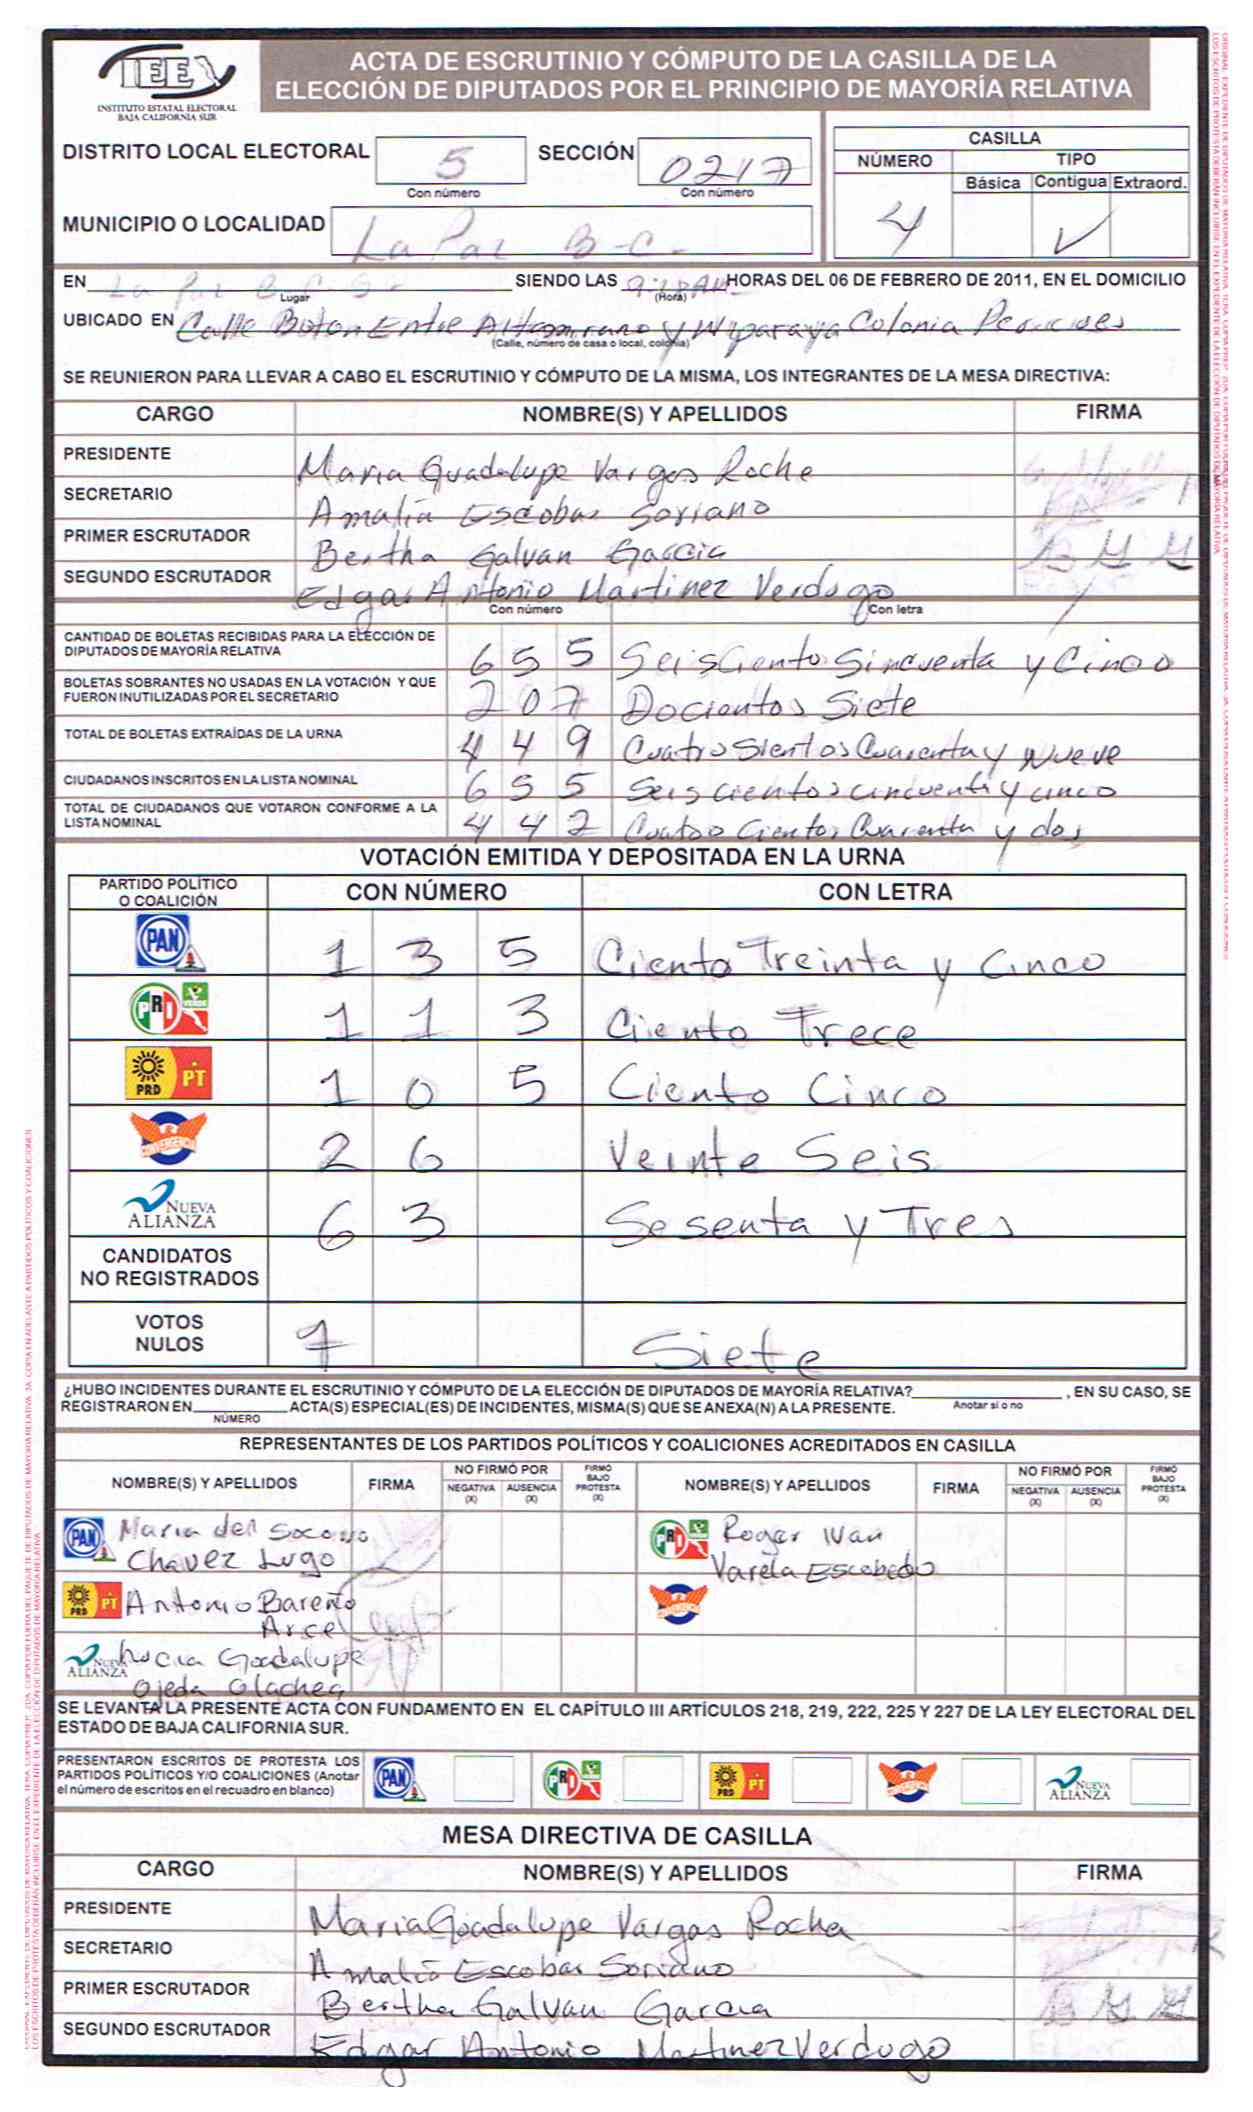 IEE
INSTITUTO ESTATAL ELECTORAL
BAJA CALIFORNIA SUR
ACTA DE ESCRUTINIO Y CÓMPUTO DE LA CASILLA DE LA
ELECCIÓN DE DIPUTADOS POR EL PRINCIPIO DE MAYORÍA RELATIVA
DISTRITO LOCAL ELECTORAL 5 SECCIÓN 0217
Con número Con número
CASILLA
NÚMERO TIPO
Básica Contigua Extraord.
4 ✓
MUNICIPIO O LOCALIDAD La Paz B-C-
EN La Paz B.C.S. SIENDO LAS HORAS DEL 06 DE FEBRERO DE 2011, EN EL DOMICILIO
Lugar (Hora)
UBICADO EN Calle Boton Entre Altamirano y Colonia
(Calle, número de casa o local, colonia)
SE REUNIERON PARA LLEVAR A CABO EL ESCRUTINIO Y CÓMPUTO DE LA MISMA, LOS INTEGRANTES DE LA MESA DIRECTIVA:
CARGO NOMBRE(S) Y APELLIDOS FIRMA
PRESIDENTE Maria Guadalupe Vargas Rocha
SECRETARIO Amalia Escobar Soriano
PRIMER ESCRUTADOR Bertha Galvan Garcia B G G
SEGUNDO ESCRUTADOR Edgar Antonio Martinez Verdugo
Con número Con letra
CANTIDAD DE BOLETAS RECIBIDAS PARA LA ELECCIÓN DE
DIPUTADOS DE MAYORÍA RELATIVA 6 5 5 SeisCiento Sincuenta y Cinco
BOLETAS SOBRANTES NO USADAS EN LA VOTACIÓN Y QUE
FUERON INUTILIZADAS POR EL SECRETARIO 2 0 7 Docientos Siete
TOTAL DE BOLETAS EXTRAÍDAS DE LA URNA 4 4 9 Cuatro Sientos Cuarenta y Nueve
CIUDADANOS INSCRITOS EN LA LISTA NOMINAL 6 5 5 Seis cientos cincuenta y cinco
TOTAL DE CIUDADANOS QUE VOTARON CONFORME A LA
LISTA NOMINAL 4 4 2 Cuatro Cientos Cuarenta y dos
VOTACIÓN EMITIDA Y DEPOSITADA EN LA URNA
PARTIDO POLÍTICO
O COALICIÓN CON NÚMERO CON LETRA
PAN 1 3 5 Ciento Treinta y Cinco
PRI VERDE 1 1 3 Ciento Trece
PRD PT 1 0 5 Ciento Cinco
CONVERGENCIA 2 6 Veinte Seis
NUEVA ALIANZA 6 3 Sesenta y Tres
CANDIDATOS
NO REGISTRADOS
VOTOS
NULOS 7 Siete
¿HUBO INCIDENTES DURANTE EL ESCRUTINIO Y CÓMPUTO DE LA ELECCIÓN DE DIPUTADOS DE MAYORÍA RELATIVA? , EN SU CASO, SE
Anotar si o no
REGISTRARON EN ACTA(S) ESPECIAL(ES) DE INCIDENTES, MISMA(S) QUE SE ANEXA(N) A LA PRESENTE.
NÚMERO
REPRESENTANTES DE LOS PARTIDOS POLÍTICOS Y COALICIONES ACREDITADOS EN CASILLA
NOMBRE(S) Y APELLIDOS FIRMA NO FIRMÓ POR NEGATIVA (X) AUSENCIA (X) FIRMÓ BAJO PROTESTA (X) NOMBRE(S) Y APELLIDOS FIRMA NO FIRMÓ POR NEGATIVA (X) AUSENCIA (X) FIRMÓ BAJO PROTESTA (X)
PAN Maria del Socorro
Chavez Lugo
PRI VERDE Roger Ivan
Varela Escobedo
PRD PT Antonio Bareño
Arce
CONVERGENCIA
NUEVA ALIANZA Lucia Guadalupe
Ojeda Olachea
SE LEVANTA LA PRESENTE ACTA CON FUNDAMENTO EN EL CAPÍTULO III ARTÍCULOS 218, 219, 222, 225 Y 227 DE LA LEY ELECTORAL DEL
ESTADO DE BAJA CALIFORNIA SUR.
PRESENTARON ESCRITOS DE PROTESTA LOS
PARTIDOS POLÍTICOS Y/O COALICIONES (Anotar
el número de escritos en el recuadro en blanco)
PAN PRI VERDE PRD PT CONVERGENCIA NUEVA ALIANZA
MESA DIRECTIVA DE CASILLA
CARGO NOMBRE(S) Y APELLIDOS FIRMA
PRESIDENTE Maria Goadalupe Vargas Rocha
SECRETARIO Amalia Escobar Soriano
PRIMER ESCRUTADOR Bertha Galvan Garcia B G G
SEGUNDO ESCRUTADOR Edgar Antonio Martinez Verdugo